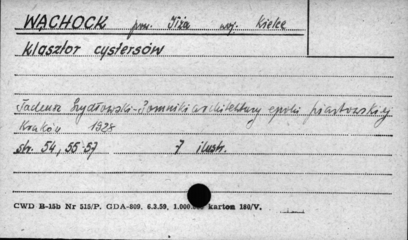 WĄCHOCK pow. Iłża woj. Kielce
klasztor cystersów
Tadeusz Szydłowski - Pomniki architektury epoki piastowskiej
Kraków 1928
str. 54, 55-57 7 ilustr.
CWD B-15b Nr 515/P. GDA-809. 6.3.59. 1.000. karton 180/V.